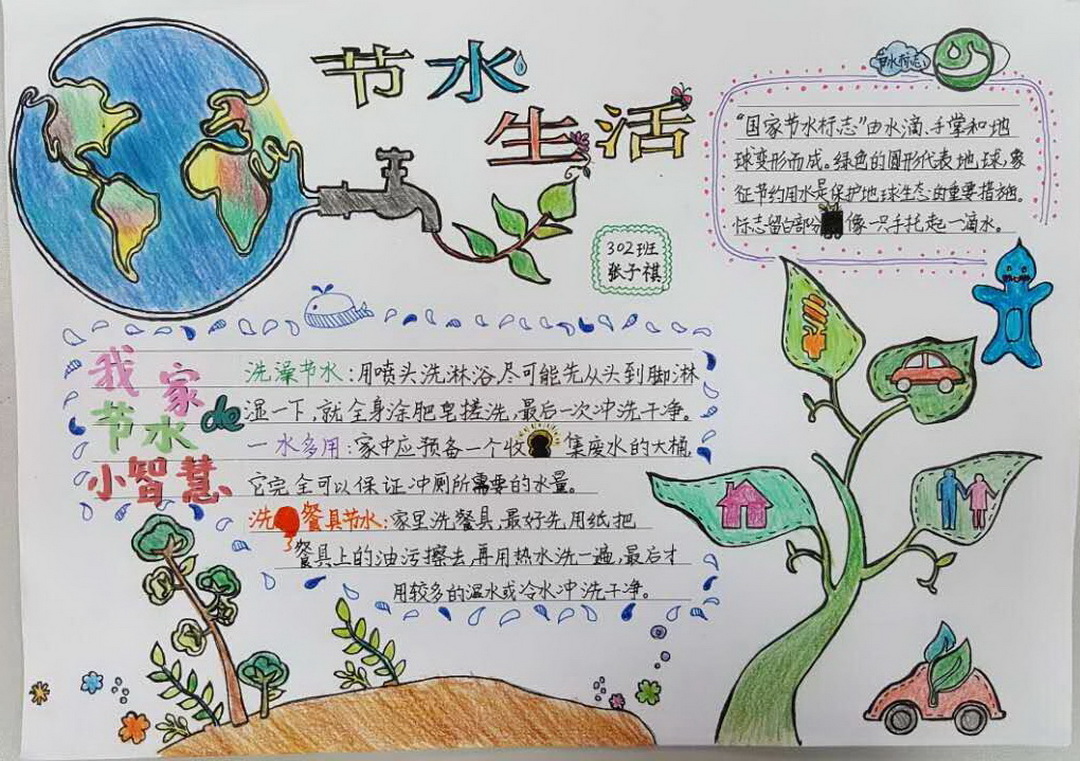 节水
生活
节水标志
“国家节水标志”由水滴、手掌和地
球变形而成。绿色的圆形代表地球,象
征节约用水是保护地球生态的重要措施。
标志留白部分像一只手托起一滴水。
302班
张子祺
我家
节水de
小智慧
洗澡节水:用喷头洗淋浴,尽可能先从头到脚淋
湿一下,就全身涂肥皂搓洗,最后一次冲洗干净。
一水多用:家中应预备一个收集废水的大桶,
它完全可以保证冲厕所需要的水量。
洗餐具节水:家里洗餐具,最好先用纸把
餐具上的油污擦去,再用热水洗一遍,最后才
用较多的温水或冷水冲洗干净。